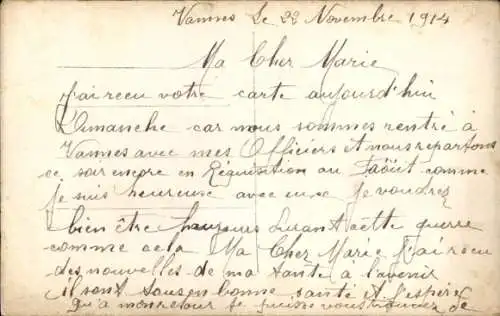 Vannes Le 22 Novembre 1914
Ma Cher Marie
j'ai recu votre carte aujourd'hui
Dimanche car nous sommes rentré à
Vannes avec mes Officiers et nous repartons
ce soir encore en Réquisition au Faöüt comme
je suis heureuse avec eux je voudrez
bien être toujours durant cette guerre
comme cela Ma Cher Marie j'ai recu
des nouvelles de ma tante à l'avenir
il sont tous en bonne santé et j'espère
qu'a mon retour je puisse vous de